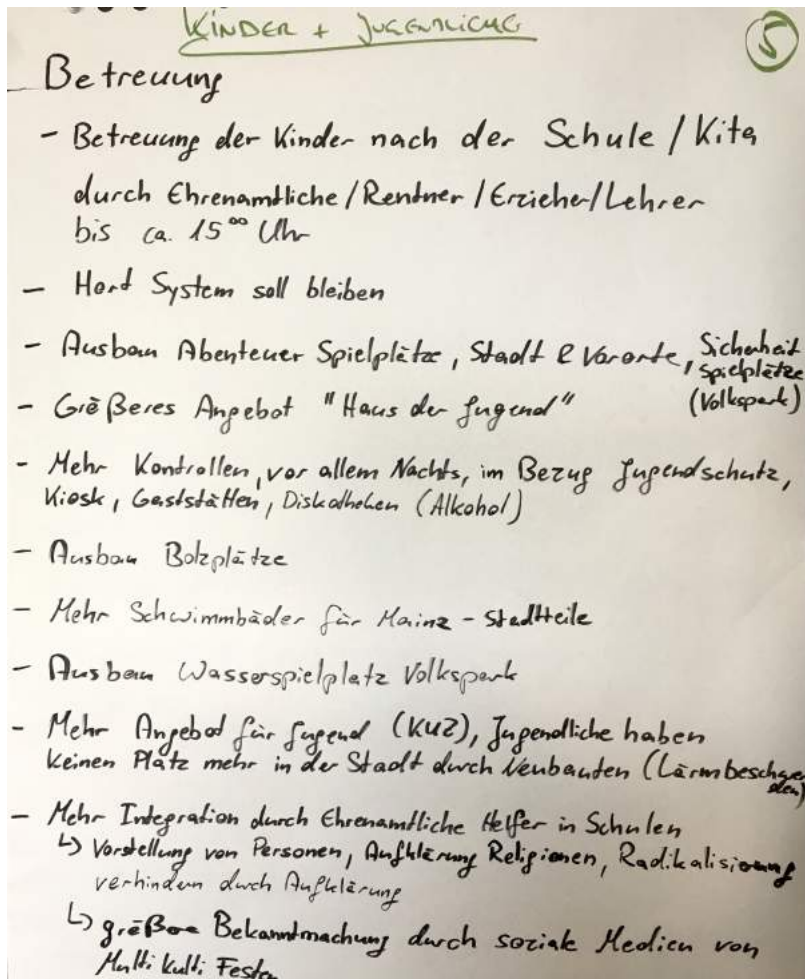 KINDER + JUGENDLICHE
5
Betreuung
- Betreuung der Kinder nach der Schule / Kita
durch Ehrenamtliche / Rentner / Erzieher / Lehrer
bis ca. 15°° Uhr
- Hort System soll bleiben
- Ausbau Abenteuer Spielplätze, Stadt & Vororte, Sicherheit
Spielplätze
(Volkspark)
- Größeres Angebot "Haus der Jugend"
- Mehr Kontrollen, vor allem Nachts, im Bezug Jugendschutz,
Kiosk, Gaststätten, Diskotheken (Alkohol)
- Ausbau Bolzplätze
- Mehr Schwimmbäder für Mainz - Stadtteile
- Ausbau Wasserspielplatz Volkspark
- Mehr Angebot für Jugend (KUZ), Jugendliche haben
keinen Platz mehr in der Stadt durch Neubauten (Lärmbeschwer
den)
- Mehr Integration durch Ehrenamtliche Helfer in Schulen
↳ Vorstellung von Personen, Aufklärung Religionen, Radikalisierung
verhindern durch Aufklärung
↳ größere Bekanntmachung durch soziale Medien von
Multi Kulti Festen